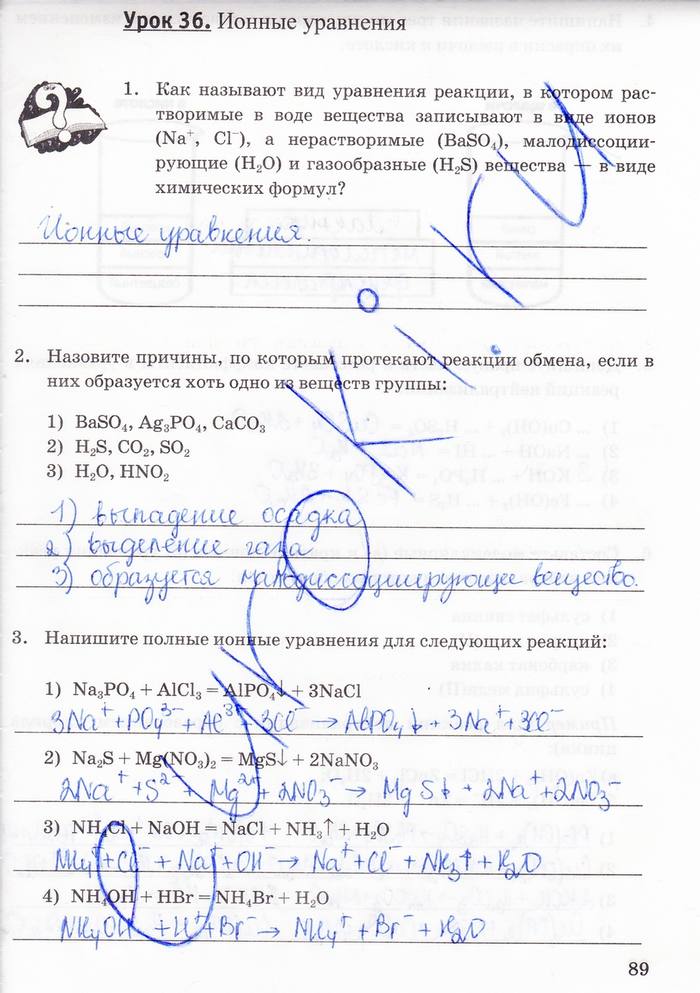 Урок 36. Ионные уравнения
1. Как называют вид уравнения реакции, в котором рас-
творимые в воде вещества записывают в виде ионов
(Na⁺, Cl⁻), а нерастворимые (BaSO₄), малодиссоции-
рующие (H₂O) и газообразные (H₂S) вещества — в виде
химических формул?
Ионные уравнения.
2. Назовите причины, по которым протекают реакции обмена, если в
них образуется хоть одно из веществ группы:
1) BaSO₄, Ag₃PO₄, CaCO₃
2) H₂S, CO₂, SO₂
3) H₂O, HNO₂
1) выпадение осадка
2) выделение газа
3) образуется малодиссоциирующее вещество.
3. Напишите полные ионные уравнения для следующих реакций:
1) Na₃PO₄ + AlCl₃ = AlPO₄↓ + 3NaCl
3Na⁺ + PO₄³⁻ + Al³⁺ 3Cl⁻ → AlPO₄↓ + 3Na⁺ + 3Cl⁻
2) Na₂S + Mg(NO₃)₂ = MgS↓ + 2NaNO₃
2Na⁺ + S²⁻ + Mg²⁺ + 2NO₃⁻ → MgS↓ + 2Na⁺ + 2NO₃⁻
3) NH₄Cl + NaOH = NaCl + NH₃↑ + H₂O
NH₄⁺ + Cl⁻ + Na⁺ + OH⁻ → Na⁺ + Cl⁻ + NH₃↑ + H₂O
4) NH₄OH + HBr = NH₄Br + H₂O
NH₄OH + H⁺ + Br⁻ → NH₄⁺ + Br⁻ + H₂O
89